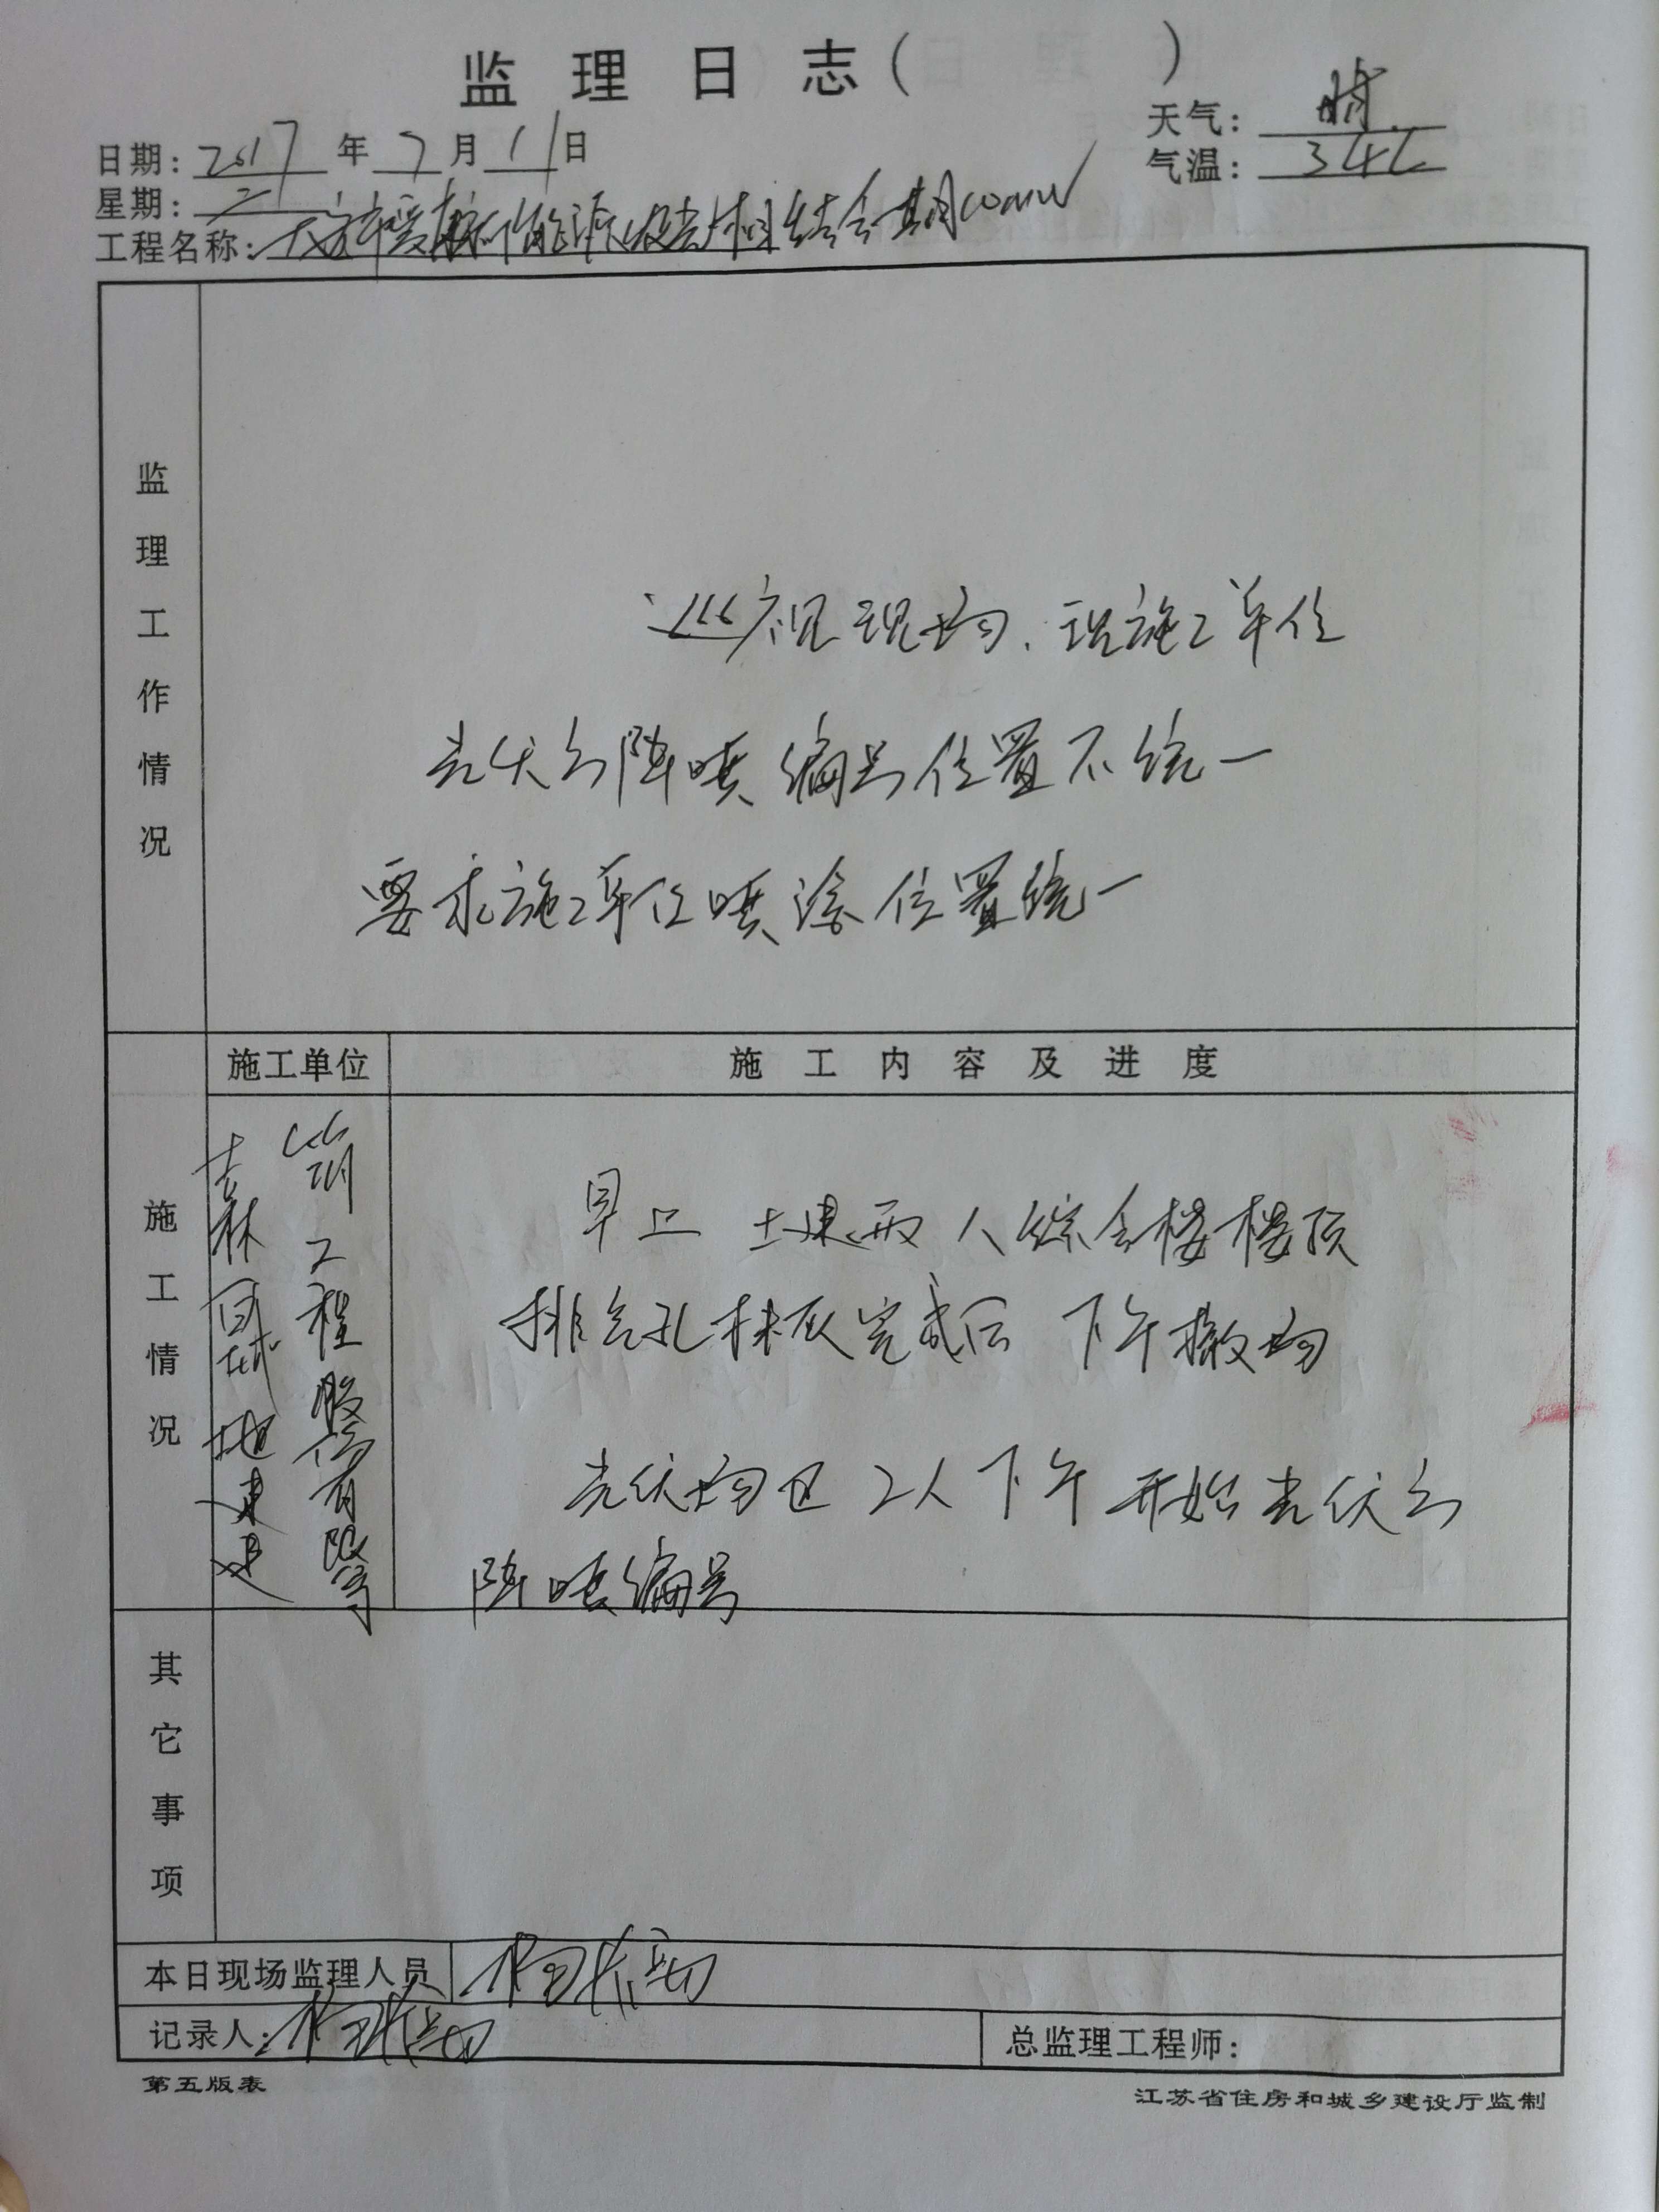 监理日志( )
天气: 晴
日期: 2017年7月11日
气温: 34℃
星期: 二
工程名称: 结合一期10MW
监理工作情况
巡视现场、现施工单位
光伏方阵喷编号位置不统一
要求施工单位喷涂位置统一
施工单位
施工内容及进度
施工情况
吉林
筑工程股份有限
早上 土建两人综合楼楼顶
排气孔抹灰完成后 下午撤场
光伏场区2人下午开始光伏方
阵喷编号
其它事项
本日现场监理人员
记录人:
总监理工程师:
第五版表
江苏省住房和城乡建设厅监制